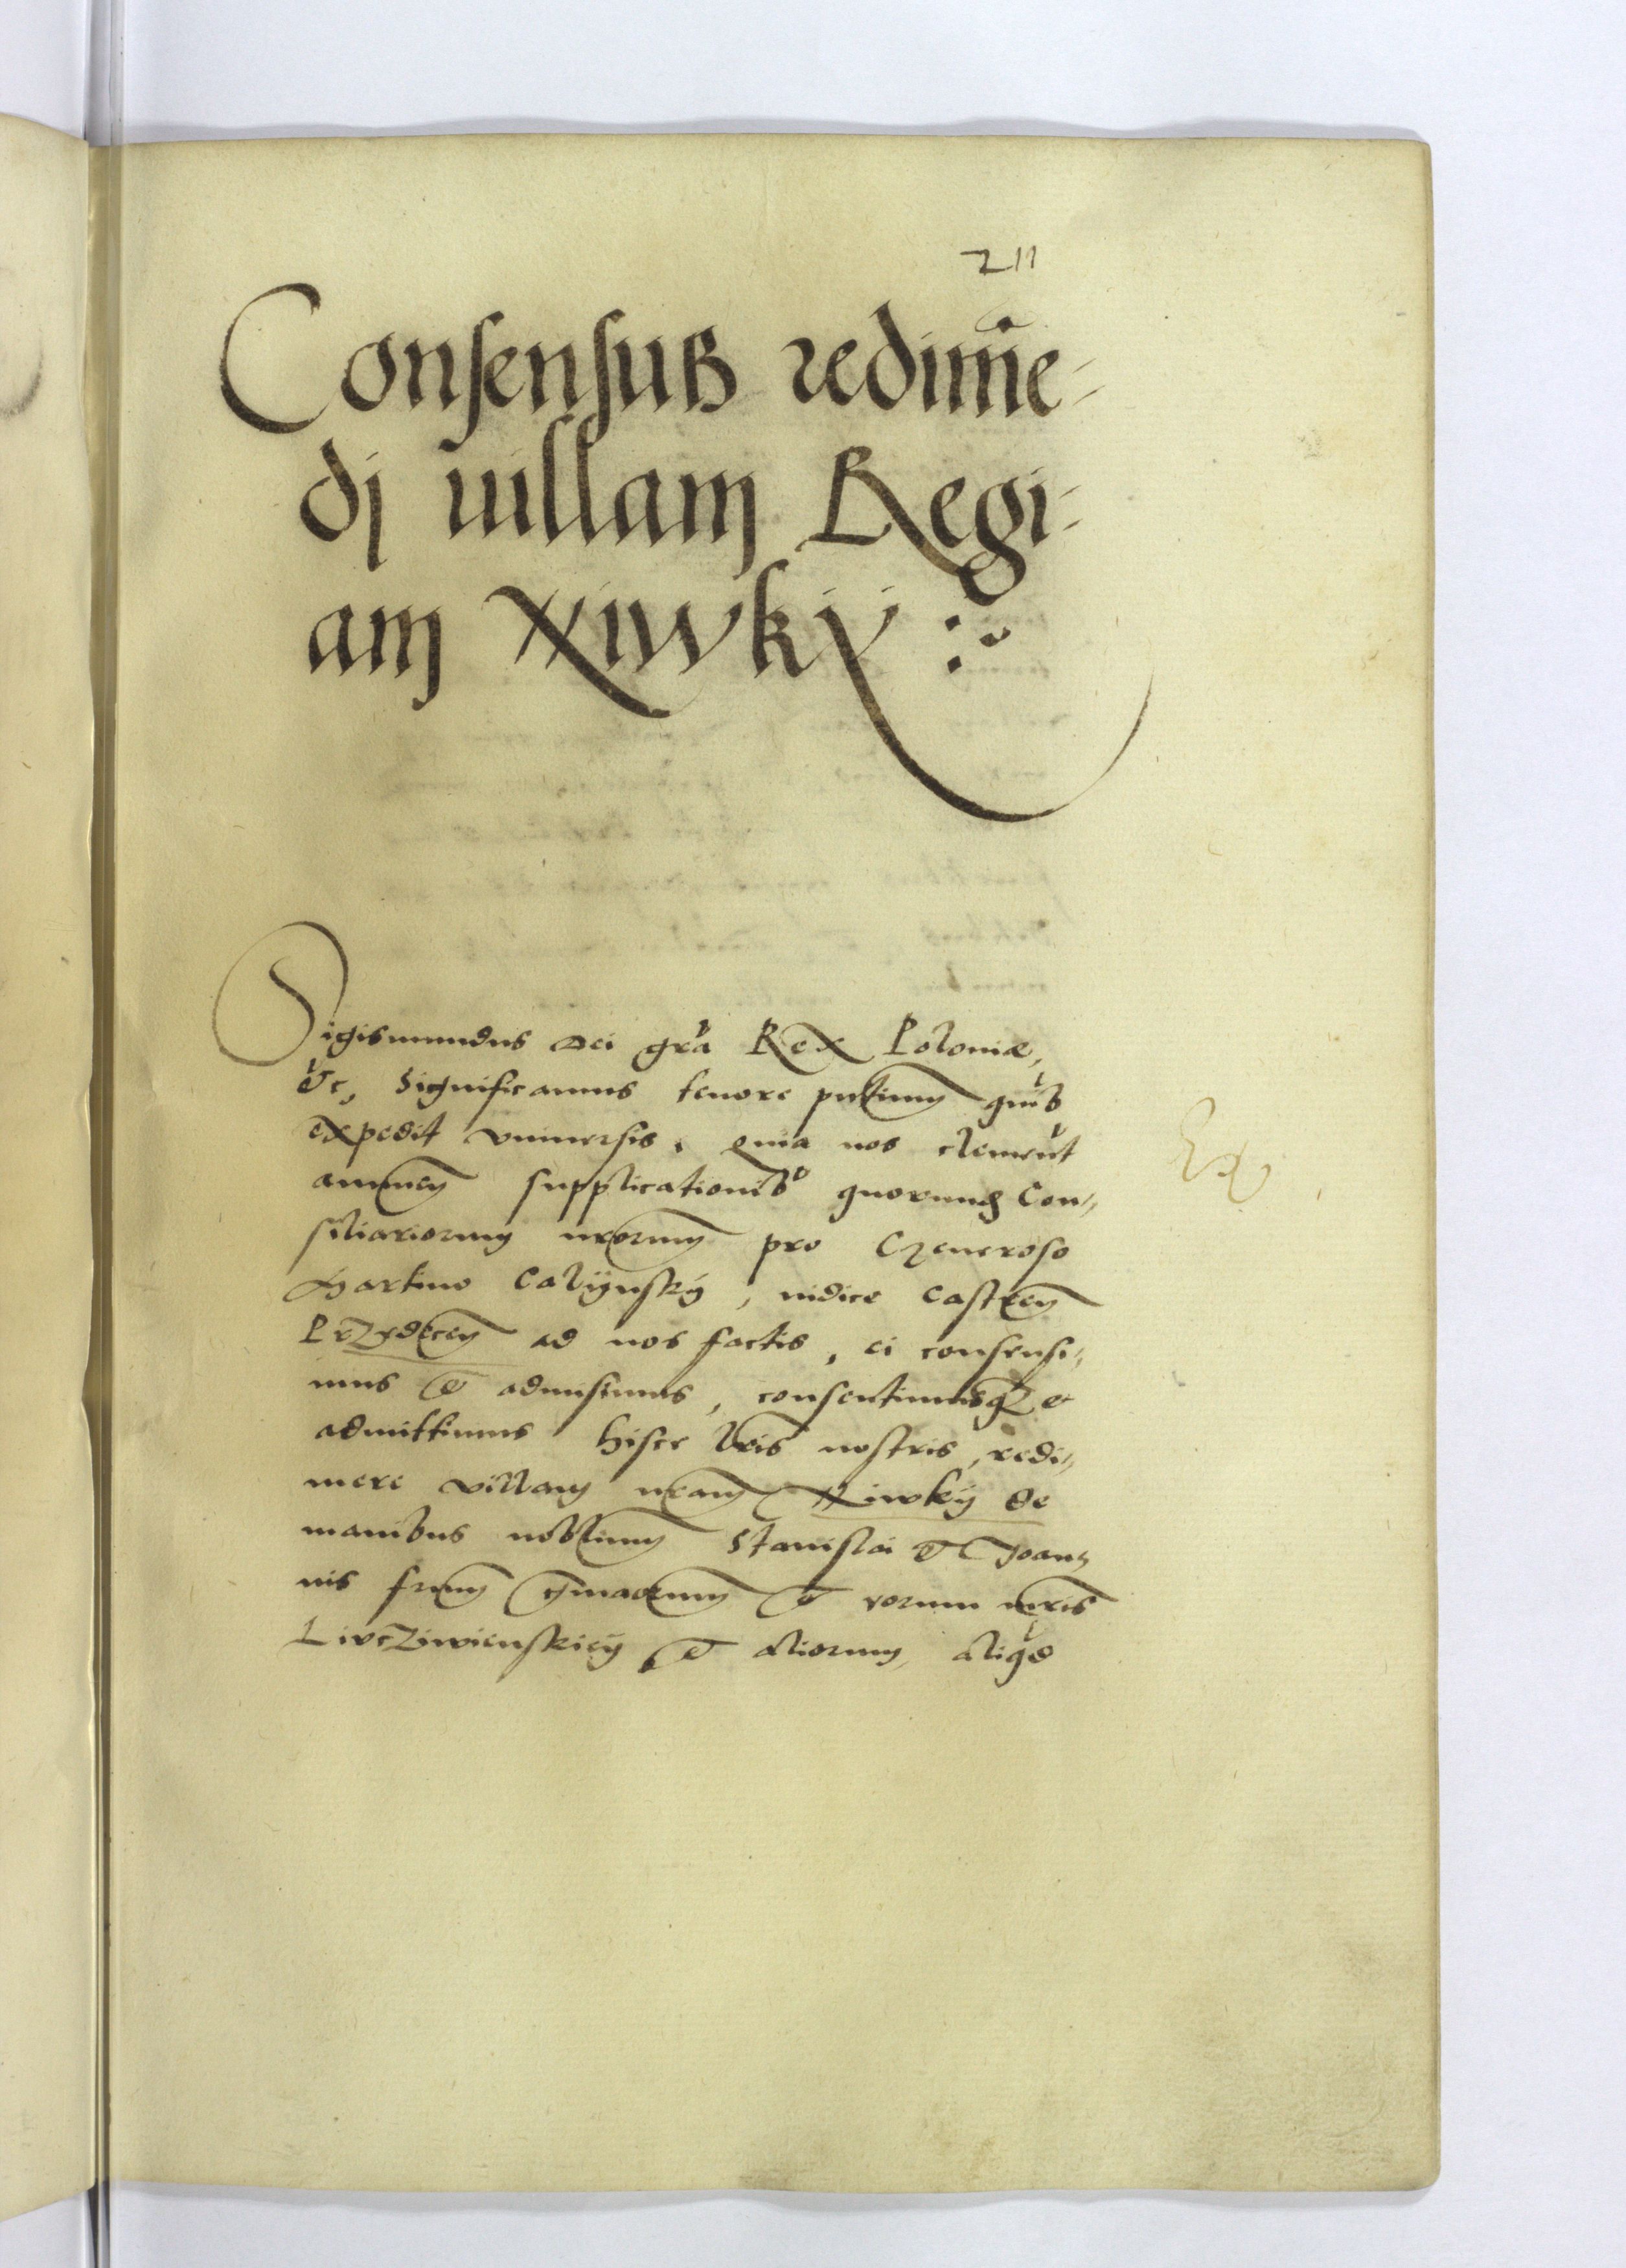 211
Consensus redime-
dj uillam Regi-
am Xiwkÿ
Sigismundus Dei gra Rex Poloniæ,
etc, Significamus tenore pntium quibs
expedit vniuersis, quia nos clement
annuen supplicationibs quorund Con-
siliariorum nrorum pro Generoso
Martino Calÿnskÿ, iudice Castren
Przedecen ad nos factis, ei consensi-
mus et admisimus, consentimusq et
admittimus hisce lris nostris, redi-
mere villam nram Xiwkÿ de
manibus nobilium Stanislai et Joan-
nis frum germanorum et eorum mris
et aliorum, aliqd
Ex